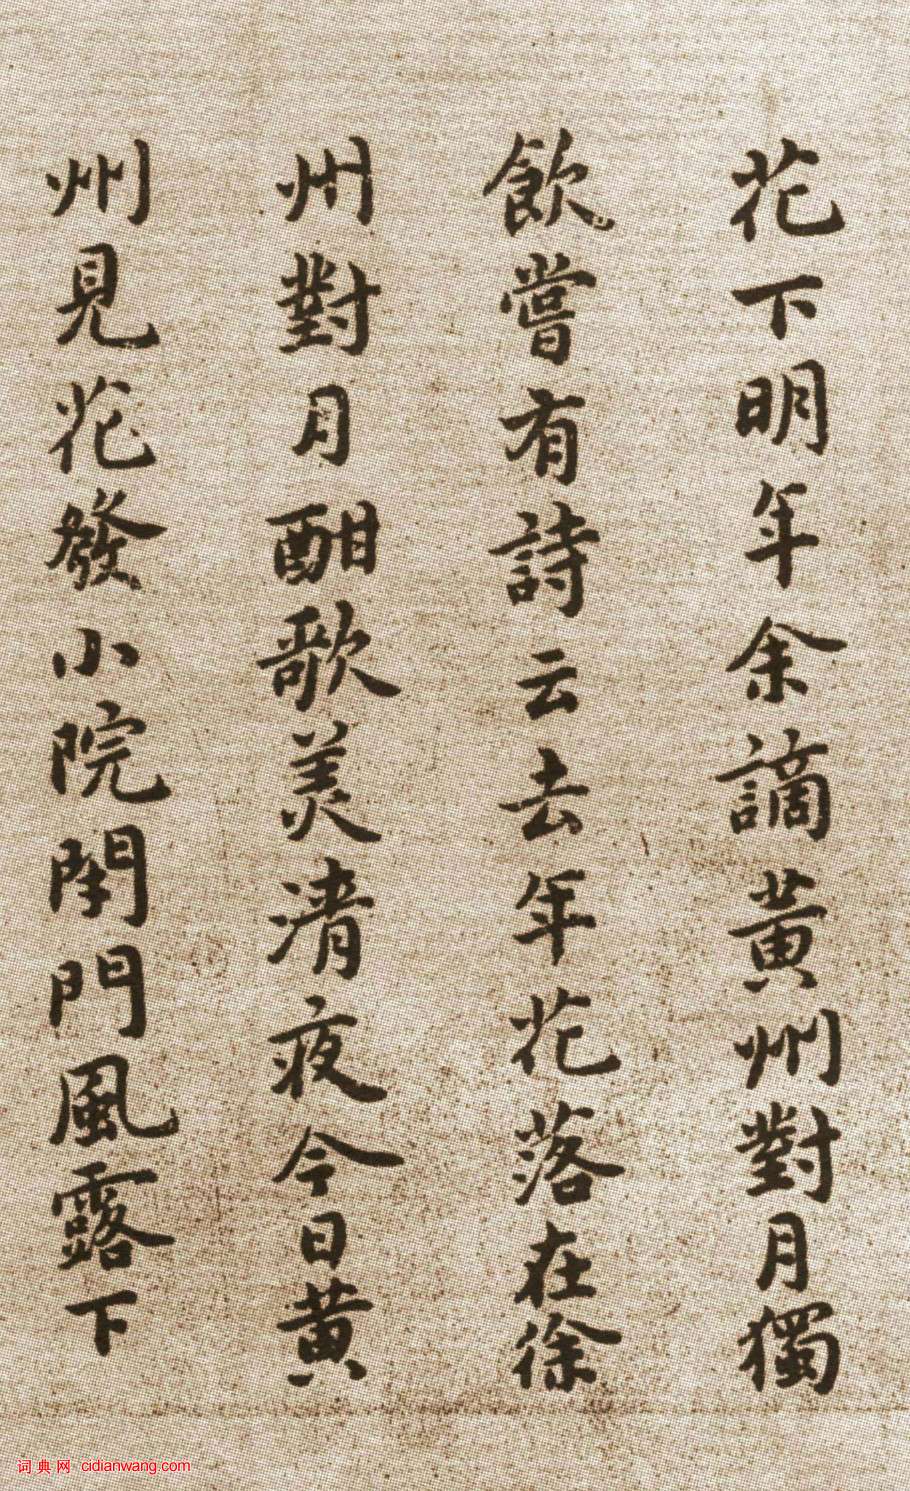 花下明年余謫黃州對月獨
飲嘗有詩云去年花落在徐
州對月酣歌美清夜今日黃
州見花發小院閉門風露下
词典网 cidianwang.com